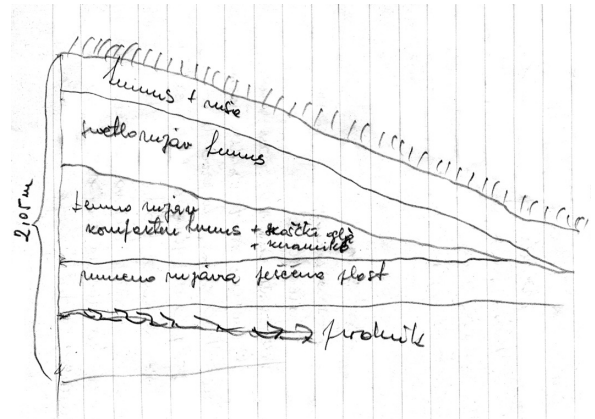 humus + ruša
svetlo rujav humus
temno rujav
kompakten humus + koščki oglja
+ keramike
rumeno rujava peščena plast
prodnik
2,05 m